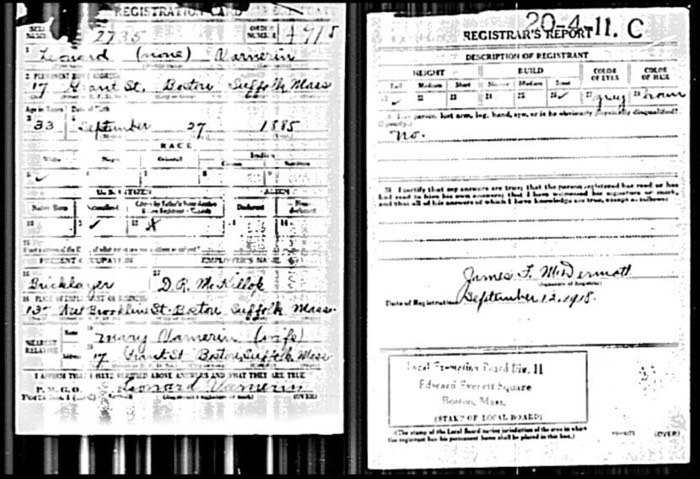 REGISTRATION CARD
SERIAL NUMBER 2735 ORDER NUMBER
1 Leonard (none) Vamerin
2 PERMANENT HOME ADDRESS
17 Grant St. Boston Suffolk Mass
Age in Years Date of Birth
33 September 27 1885
RACE
White Negro Oriental Indian
Citizen Noncitizen
U. S. CITIZEN ALIEN
Native Born Naturalized Citizen by Father's Naturalization Before Registrant's Majority Declarant Non-declarant
PRESENT OCCUPATION EMPLOYER'S NAME
Bricklayer D. R. McKillop
PLACE OF EMPLOYMENT OR BUSINESS
Brookline St. Boston Suffolk Mass.
NEAREST RELATIVE Name Mary Vamerin (wife)
Address 17 Grant St Boston Suffolk Mass
I AFFIRM THAT I HAVE VERIFIED ABOVE ANSWERS AND THAT THEY ARE TRUE
P. M. G. O.
Form No. 1 Leonard Vamerin
(OVER)
20-4-11. C
REGISTRAR'S REPORT
DESCRIPTION OF REGISTRANT
HEIGHT BUILD COLOR OF EYES COLOR OF HAIR
Tall Medium Short Slender Medium Stout
21 ✓ 22 23 24 25 26 ✓ 27 grey 28 brown
29 Has person lost arm, leg, hand, eye, or is he obviously physically disqualified?
(Specify.)
No.
30 I certify that my answers are true; that the person registered has read or has
had read to him his own answers; that I have witnessed his signature or mark,
and that all of his answers of which I have knowledge are true, except as follows:
James F. McDermott
(Signature of Registrar)
Date of Registration September 12, 1918.
Local Exemption Board Div. 11
Edward Everett Square
Boston, Mass.
(STAMP OF LOCAL BOARD)
(The stamp of the Local Board having jurisdiction of the area in which
the registrant has his permanent home shall be placed in this box.)
(OVER)